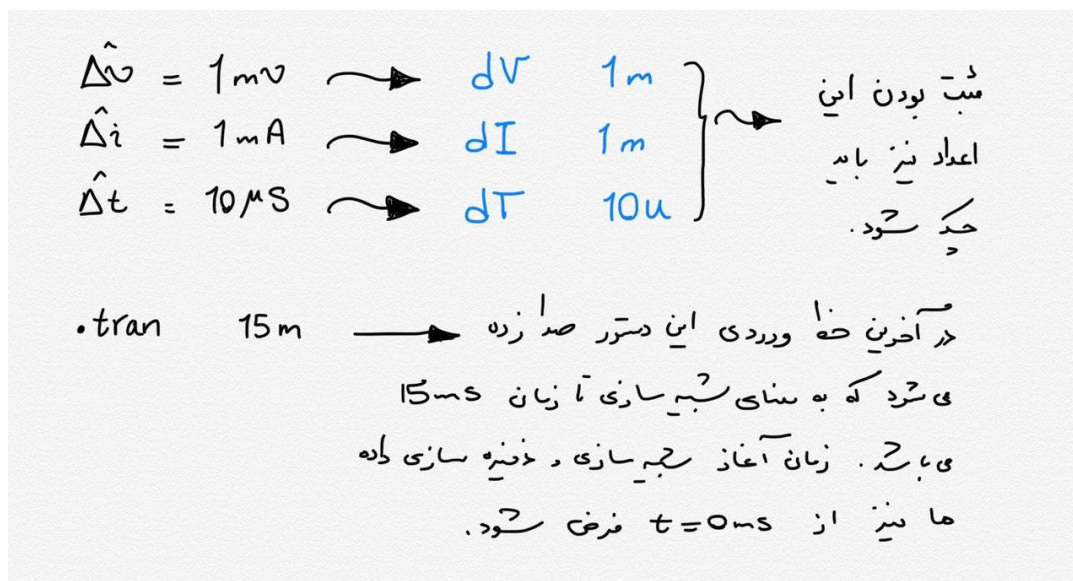 Δv̂ = 1mv → dV 1m
Δî = 1mA → dI 1m
Δ̂t = 10μS → dT 10u
مثبت بودن این
اعداد نیز باید
چک شود.
.tran 15m → در آخرین خط ورودی این دستور صدا زده
می شود که به معنای شبیه سازی تا زمان 15ms
می باشد. زمان آغاز شبیه سازی و ذخیره سازی داده
ها نیز از t=0ms فرض شود.